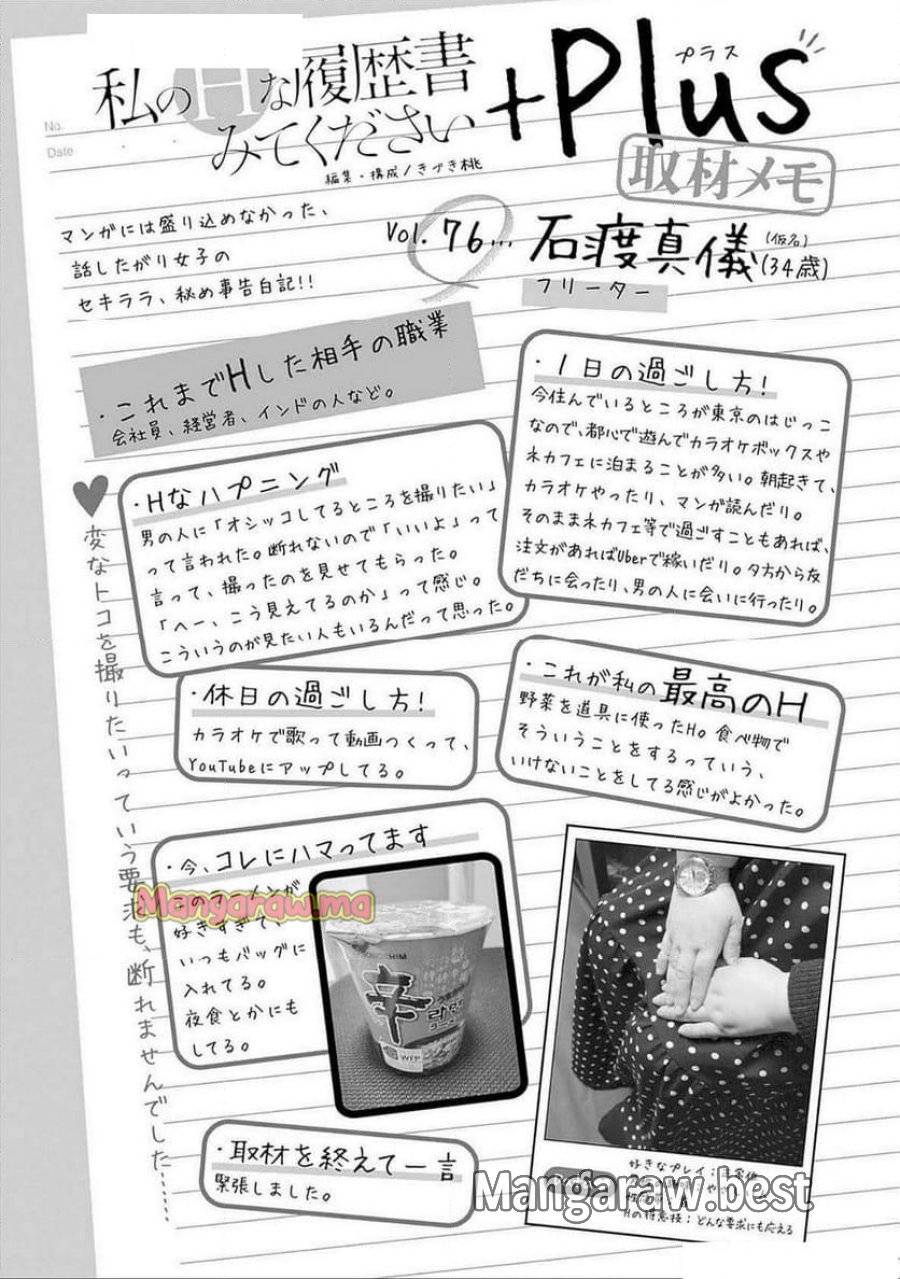 私のHな履歴書
みてください
+Plus
プラス
取材メモ
編集・構成/きづき桃
No.
Date
マンガには盛り込めなかった、
話したがり女子の
セキララ、秘め事告白記!!
Vol.76...
石渡真儀(仮名)(34歳)
フリーター
・これまでHした相手の職業
会社員、経営者、インドの人など。
・1日の過ごし方!
今住んでいるところが東京のはじっこ
なので、都心で遊んでカラオケボックスや
ネカフェに泊まることが多い。朝起きて、
カラオケやったり、マンガ読んだり。
そのままネカフェ等で過ごすこともあれば、
注文があればUberで稼いだり。夕方から友
だちに会ったり、男の人に会いに行ったり。
・Hなハプニング
男の人に「オシッコしてるところを撮りたい」
って言われた。断れないので「いいよ」って
言って、撮ったのを見せてもらった。
「へー、こう見えてるのか」って感じ。
こういうのが見たい人もいるんだって思った。
♥変なトコを撮りたいっていう要求も、断れませんでした……
・休日の過ごし方!
カラオケで歌って動画つくって、
YouTubeにアップしてる。
・これが私の最高のH
野菜を道具に使ったH。食べ物で
そういうことをするっていう、
いけないことをしてる感じがよかった。
・今、コレにハマってます
好きすぎて、
いつもバッグに
入れてる。
夜食とかにも
してる。
辛
Mangaraw.ma
・取材を終えて一言
緊張しました。
好きなプレイ:
Hの特意技:どんな要求にも応える
Mangaraw.best